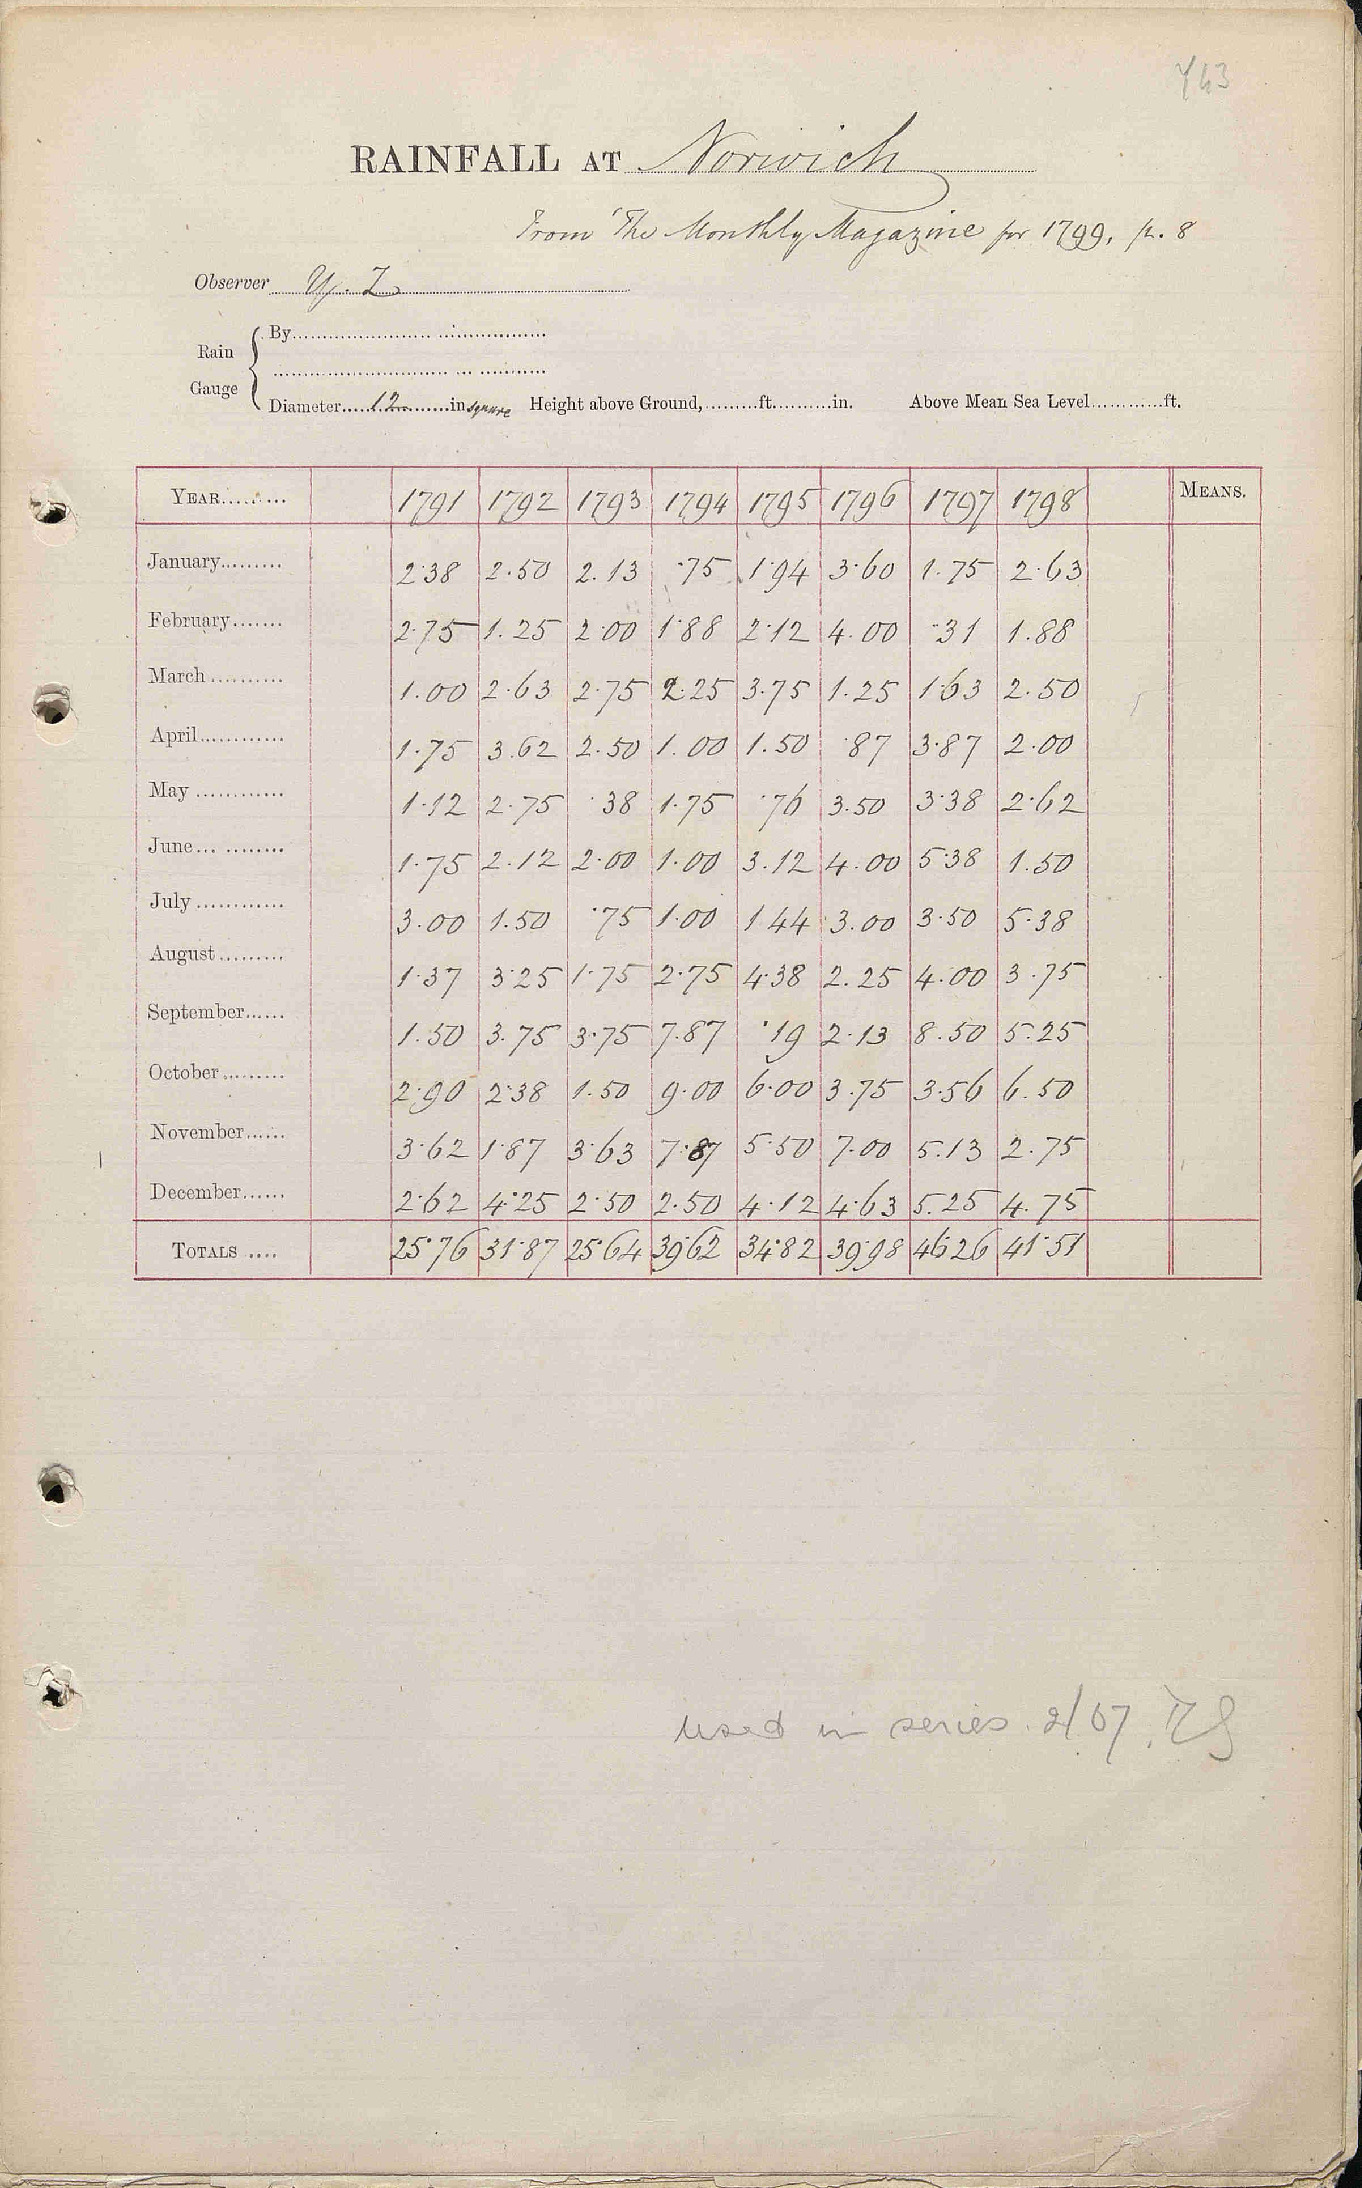 743
RAINFALL AT Norwich
From 'The Monthly Magazine for 1799, p. 8
Observer Y. Z
Rain Gauge { By
Diameter 12 in square Height above Ground, ft. in. Above Mean Sea Level ft.
YEAR 1791 1792 1793 1794 1795 1796 1797 1798 MEANS.
January 2.38 2.50 2.13 .75 1.94 3.60 1.75 2.63
February 2.75 1.25 2.00 1.88 2.12 4.00 .31 1.88
March 1.00 2.63 2.75 2.25 3.75 1.25 1.63 2.50
April 1.75 3.62 2.50 1.00 1.50 .87 3.87 2.00
May 1.12 2.75 .38 1.75 .76 3.50 3.38 2.62
June 1.75 2.12 2.00 1.00 3.12 4.00 5.38 1.50
July 3.00 1.50 .75 1.00 1.44 3.00 3.50 5.38
August 1.37 3.25 1.75 2.75 4.38 2.25 4.00 3.75
September 1.50 3.75 3.75 7.87 .19 2.13 8.50 5.25
October 2.90 2.38 1.50 9.00 6.00 3.75 3.56 6.50
November 3.62 1.87 3.63 7.87 5.50 7.00 5.13 2.75
December 2.62 4.25 2.50 2.50 4.12 4.63 5.25 4.75
TOTALS 25.76 31.87 25.64 39.62 34.82 39.98 46.26 41.51
used in series 2/07.